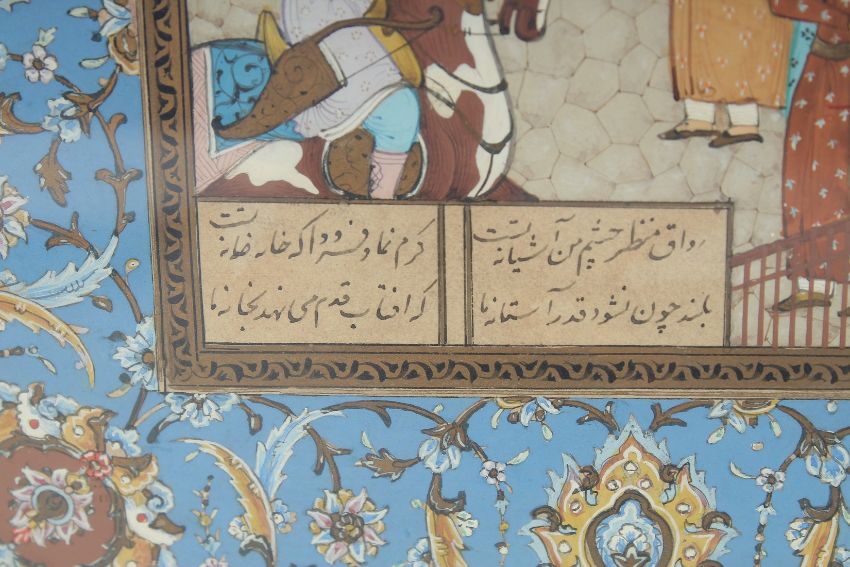 رواق منظر چشم من آشیانه تست
کرم نما و فرود آ که خانه خانه تست
بلند چون نشود قدر آستانه ما
که افتاب قدم می نهد بخانه ما